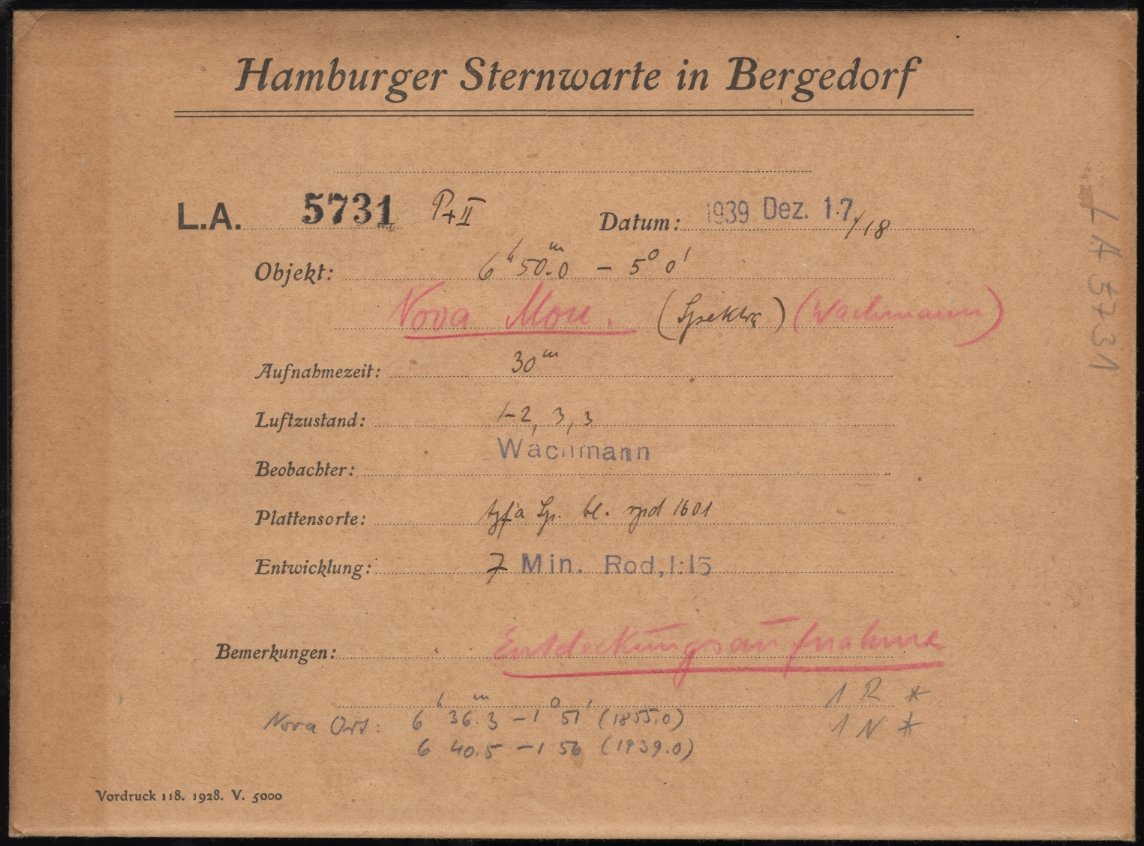 Hamburger Sternwarte in Bergedorf
L.A. 5731 P+II Datum: 1939 Dez. 17./18
Objekt: 6ʰ 50ᵐ.0 – 5° 0'
Nova Mon. (Spektr) (Wachmann)
Aufnahmezeit: 30ᵐ
Luftzustand: 1-2, 3, 3
Beobachter: Wachmann
Plattensorte: Agfa Sp. bl. rpd 1601
Entwicklung: 7 Min. Rod, 1:15
Bemerkungen: Entdeckungsaufnahme
1 R *
Nova Ort: 6ʰ 36ᵐ.3 – 1° 51' (1855.0) 1 N *
6 40.5 – 1 56 (1939.0)
Vordruck 118. 1928. V. 5000
LA 5731